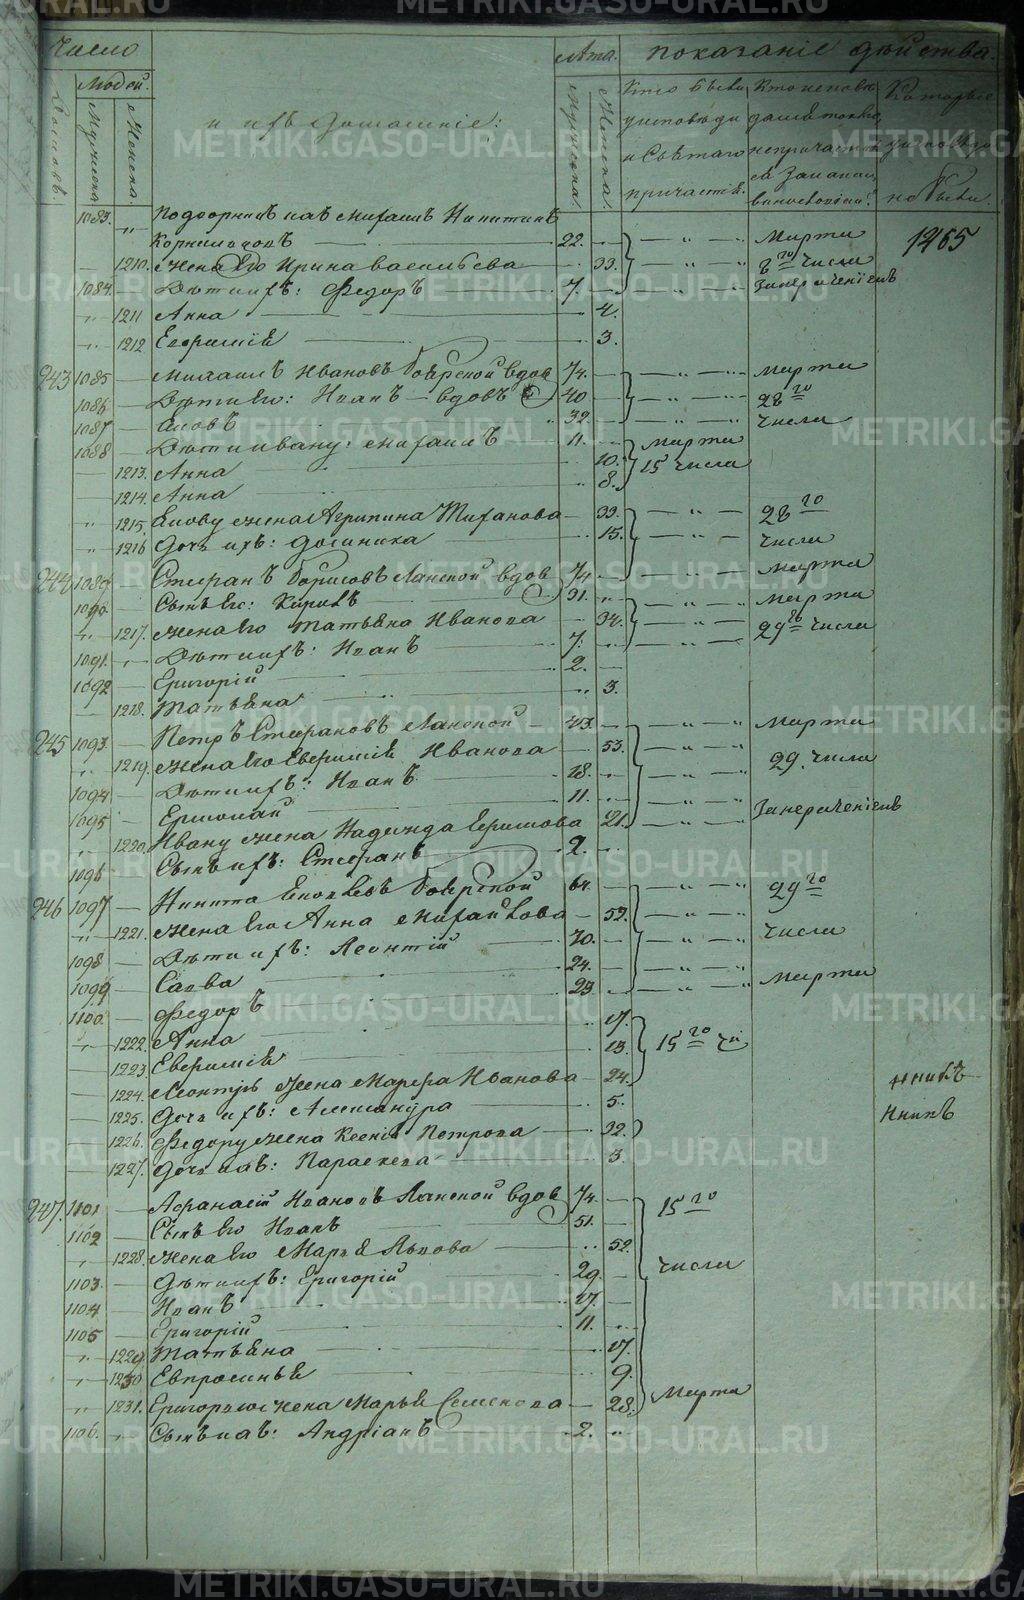 Число
Людей.
Мужска
Женска.
и ихъ Домашніе:
Лѣта.
Мужска.
Женска.
показаніе действа.
Кто были
у исповѣди
и Святаго
причастія.
Которые
не были.
1083. „ Подворникъ ихъ Михаилъ Никитинъ
Корниловъ 22. — „ — „ Марта 1265
1210. Жена его Ирина Васильева 33. — „ — „ 8го числа
1084. Дѣти ихъ: Федоръ 7. — „ — „
„ 1211 Анна 4.
„ 1212 Евфимія 3.
243 1085 Михаилъ Ивановъ Боярской вдов 74. — „ — „ Марта
1086 Дѣти его: Иванъ вдовъ 40 — „ — „ 28го
1087 Іаковъ 32. — „ — „ числа
1088 Дѣти Ивану: Михаилъ 11. Марта
1213. Анна 10. 15 числа
1214. Анна 8.
„ 1215. Іакову жена Агрипина 33. — „ — „ 28го
„ 1216 Дочь ихъ: 15. — „ — „ числа
244 1089 Стефанъ Борисовъ Ланской вдов 74. — „ — „ Марта
1090 Сынъ его: 31. — „ — „ Марта
„ 1217. Жена его Татьяна Иванова 34. — „ — „ числа
1091. „ Дѣти ихъ: Иванъ 7. — „ — „
1092 Григорій 2.
1218. Татьяна 3.
245 1093. Петръ Стефановъ Ланской 43. — „ — „ Марта
„ 1219. Жена его Евфимія Иванова 53. — „ — „ 29. числа
1094 Дѣти ихъ: Иванъ 18.
1095 Ермолай 11. — „ — „
„ 1220. Ивану жена Надежда 21. — „ — „
1096 Сынъ ихъ: Стефанъ 2.
246 1097 Никита Боярской 64. — „ — „ 29го
„ 1221. Жена его Анна Михайлова 59. — „ — „
1098 Дѣти ихъ: Леонтій 30. — „ — „ числа
1099 Савва 24. — „ — „
1100. Федоръ 23 — „ — „ Марта
„ 1222. Анна 17. 15го чи
1223. Евфимія 13.
1224. Леонтію жена Марфа Иванова 24.
1225. Дочь ихъ: Александра 5.
1226. Федору жена Ксенія Петрова 22.
1227. Дочь ихъ: Параскева 3.
247. 1101 Афанасій Ивановъ Ланской вдов 74. 15го
1102 Сынъ его Иванъ 51.
„ 1228. Жена его Марья Львова 52.
1103. Дѣти ихъ: Григорій 29. числа
1104 Иванъ 17.
1105 Григорій 11.
„ 1229. Татьяна 17.
„ 1230 Евпросинья 9.
„ 1231. Григорью жена Марья Семенова 28. Марта
1106. „ Сынъ ихъ: Андріанъ 2. „
METRIKI.GASO-URAL.RU